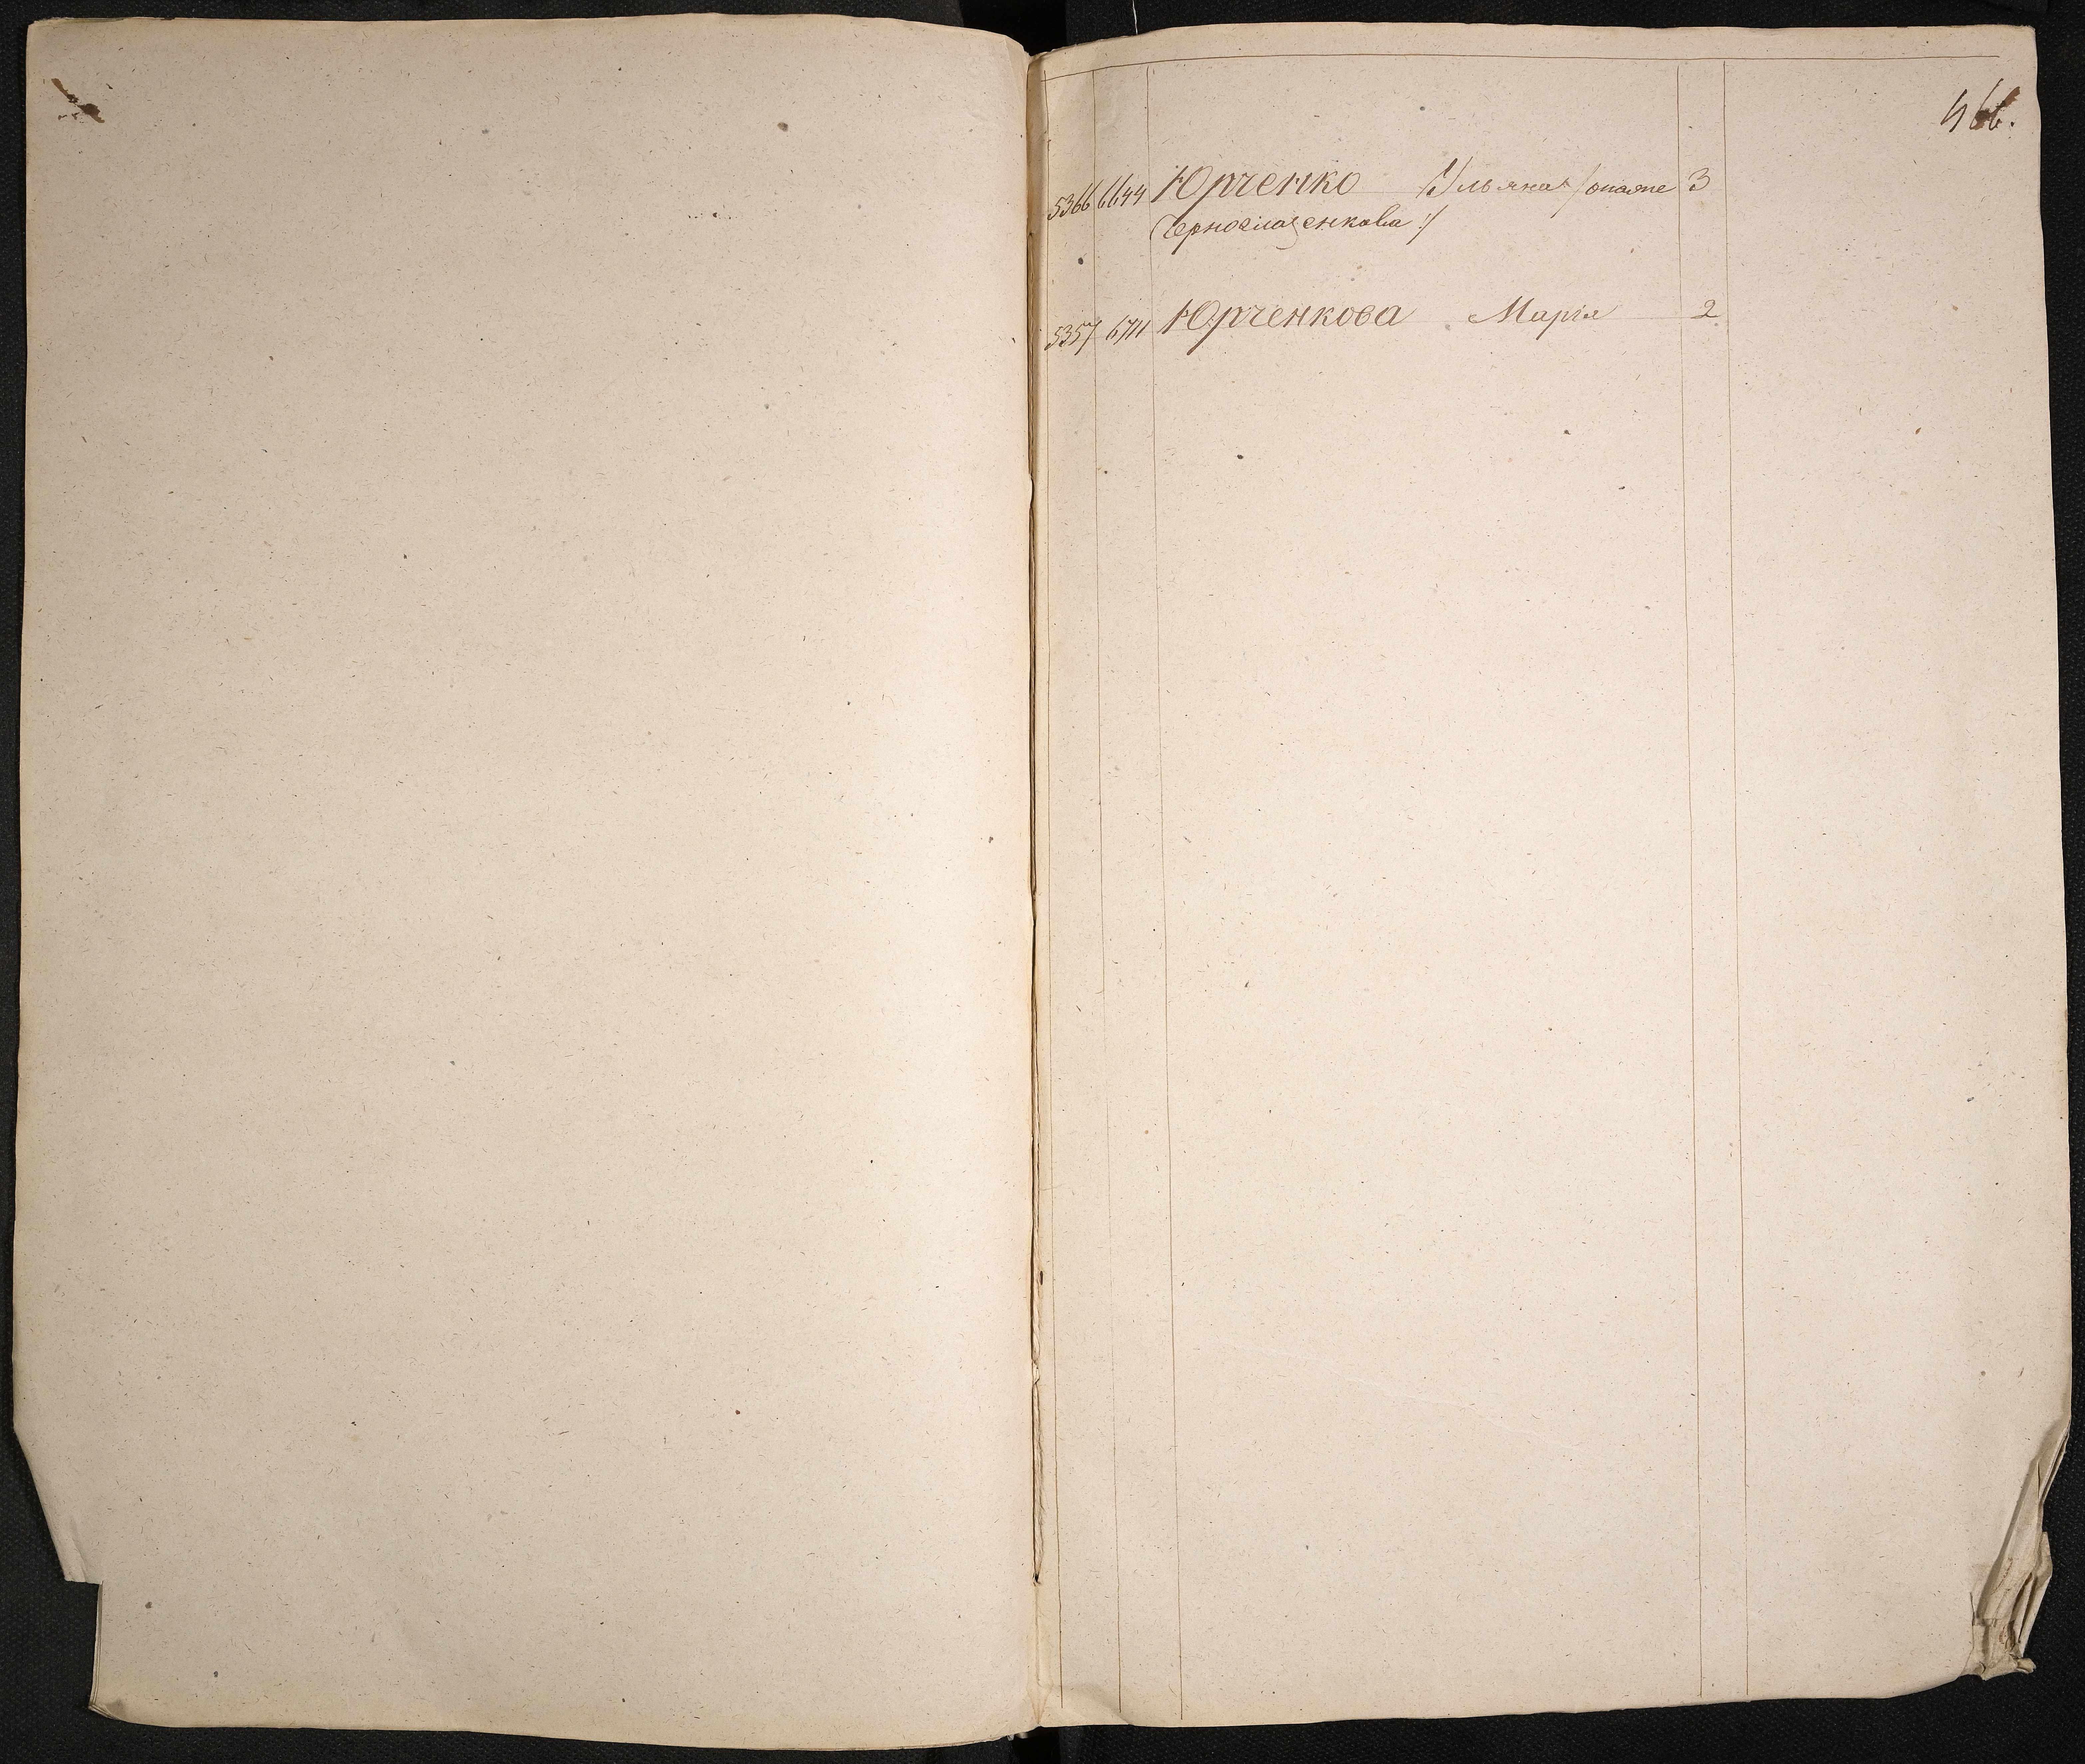 466.
5366 6644 Юрченко Ульяна /: она же 3
Черноглазенкова :/
5357 6711 Юрченкова Марія 2